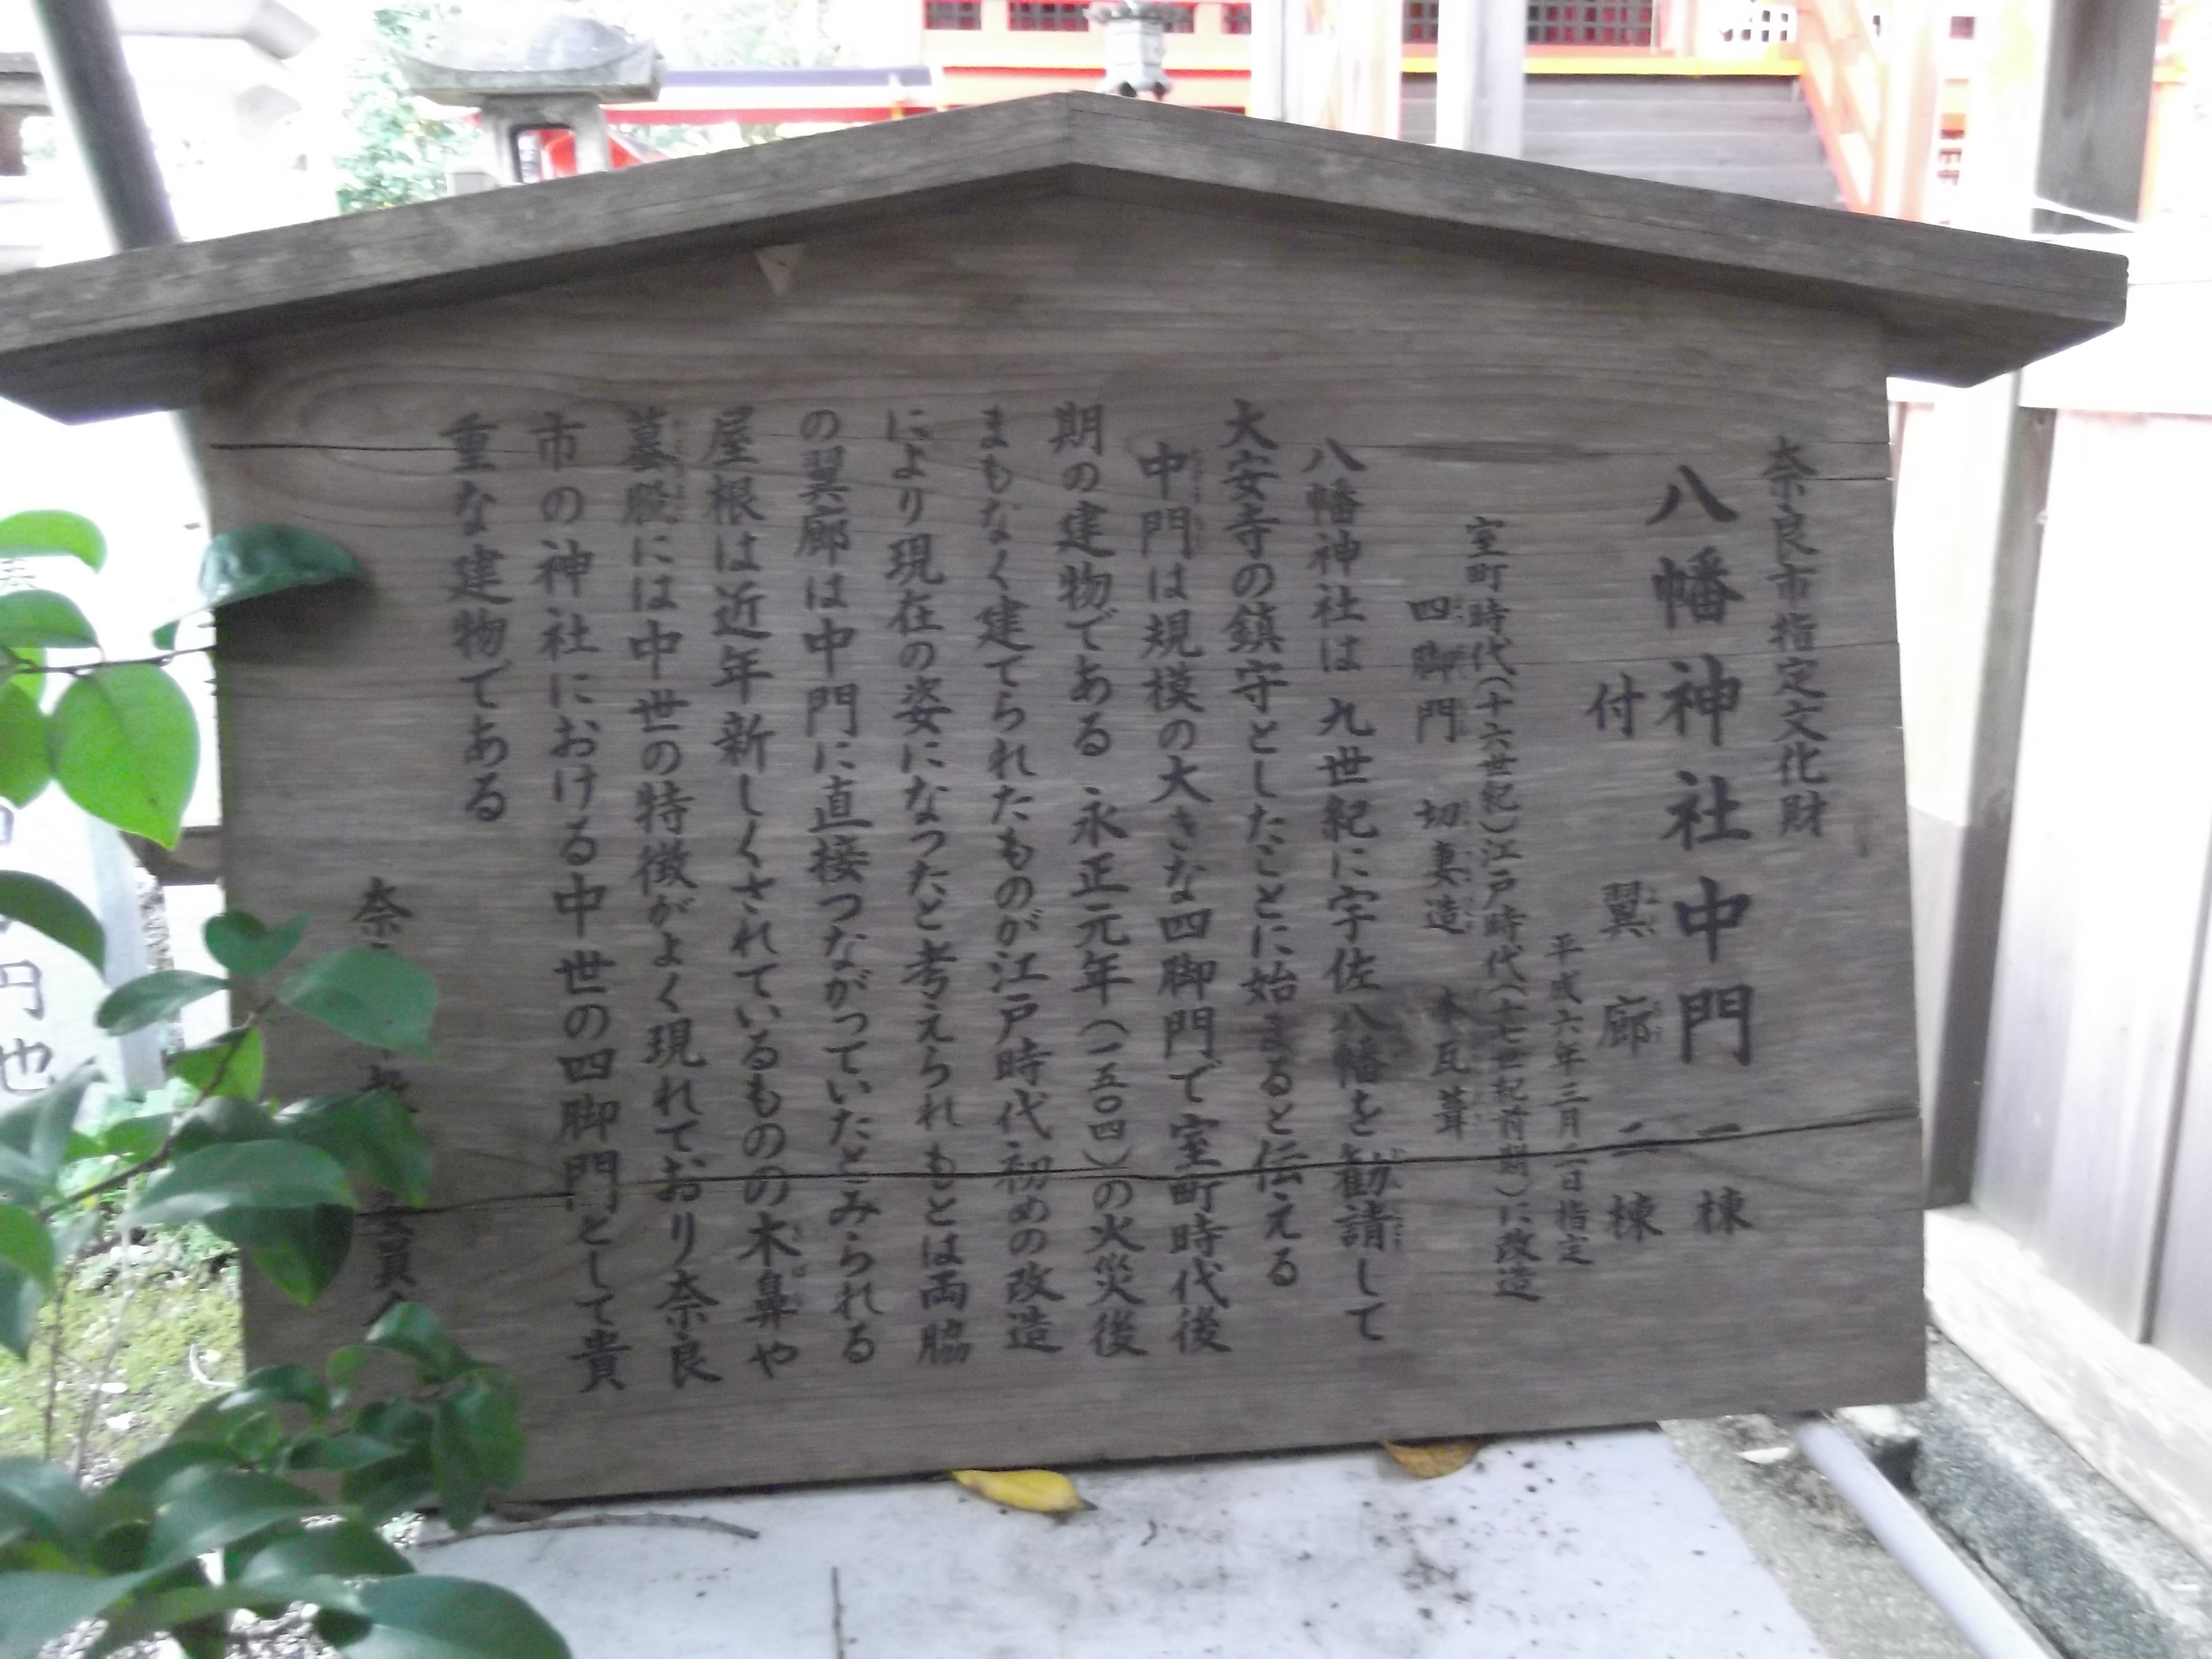 奈良市指定文化財
八幡神社中門 一棟
付 翼廊 二棟
平成六年三月二日指定
室町時代(十六世紀)江戸時代(十七世紀前期)に改造
四脚門 切妻造 本瓦葺
八幡神社は 九世紀に宇佐八幡を勧請して
大安寺の鎮守としたことに始まると伝える
中門は規模の大きな四脚門で室町時代後
期の建物である 永正元年(一五〇四)の火災後
まもなく建てられたものが江戸時代初めの改造
により現在の姿になったと考えられ もとは両脇
の翼廊は中門に直接つながっていたとみられる
屋根は近年新しくされているものの木鼻や
蟇股には中世の特徴がよく現れており奈良
市の神社における中世の四脚門として貴
重な建物である
奈 委員会
円也